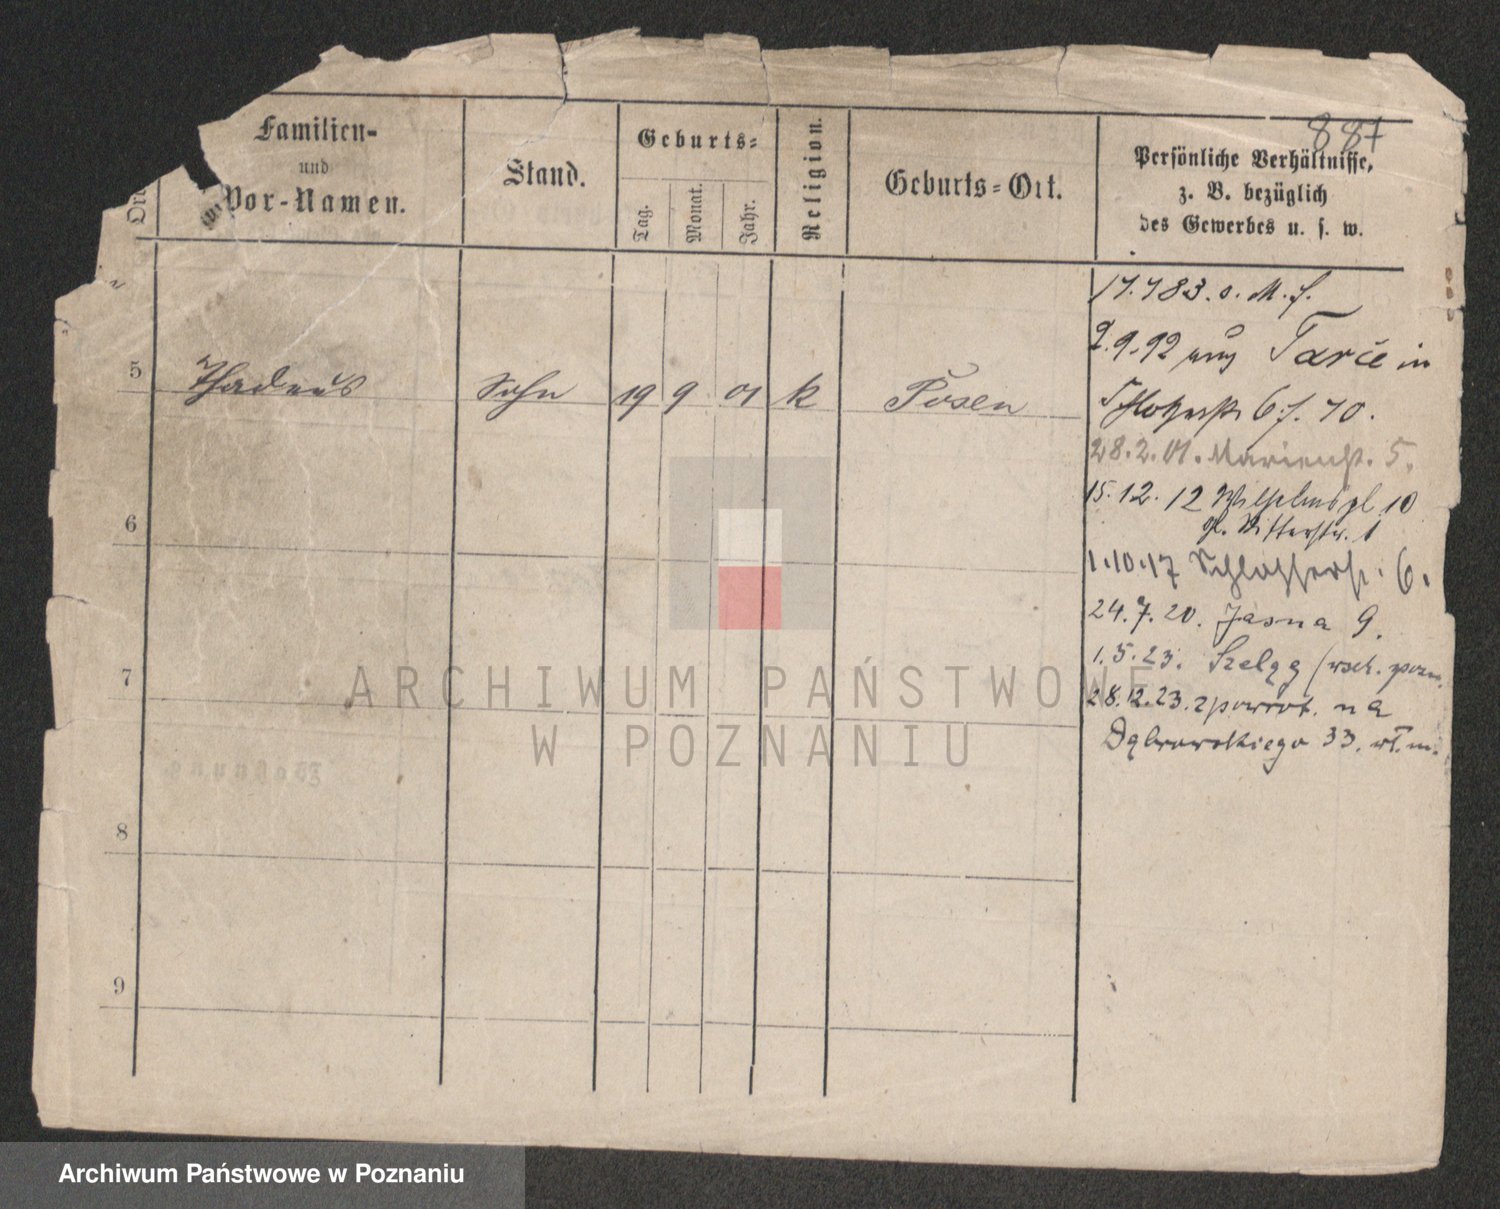 887
Familien-
und
Vor-Namen.
Stand.
Geburts-
Tag.
Monat.
Jahr.
Religion.
Geburts-Ort.
Persönliche Verhältnisse,
z. B. bezüglich
des Gewerbes u. s. w.
5 Thadeus Sohn 19 9 01 k Posen
6
7
8
9
9.92 aus in
28.2.01. Marienstr. 5.
15.12.12 Wilhelmspl. 10
Ritterstr. 1
1.10.17 Schlosserstr. 6.
24.7.20. Jasna 9.
1.5.23. Szeląg
28.12.23. zpowrot. na
Dąbrowskiego 33. wł. m.
ARCHIWUM PAŃSTWOWE
W POZNANIU
Archiwum Państwowe w Poznaniu